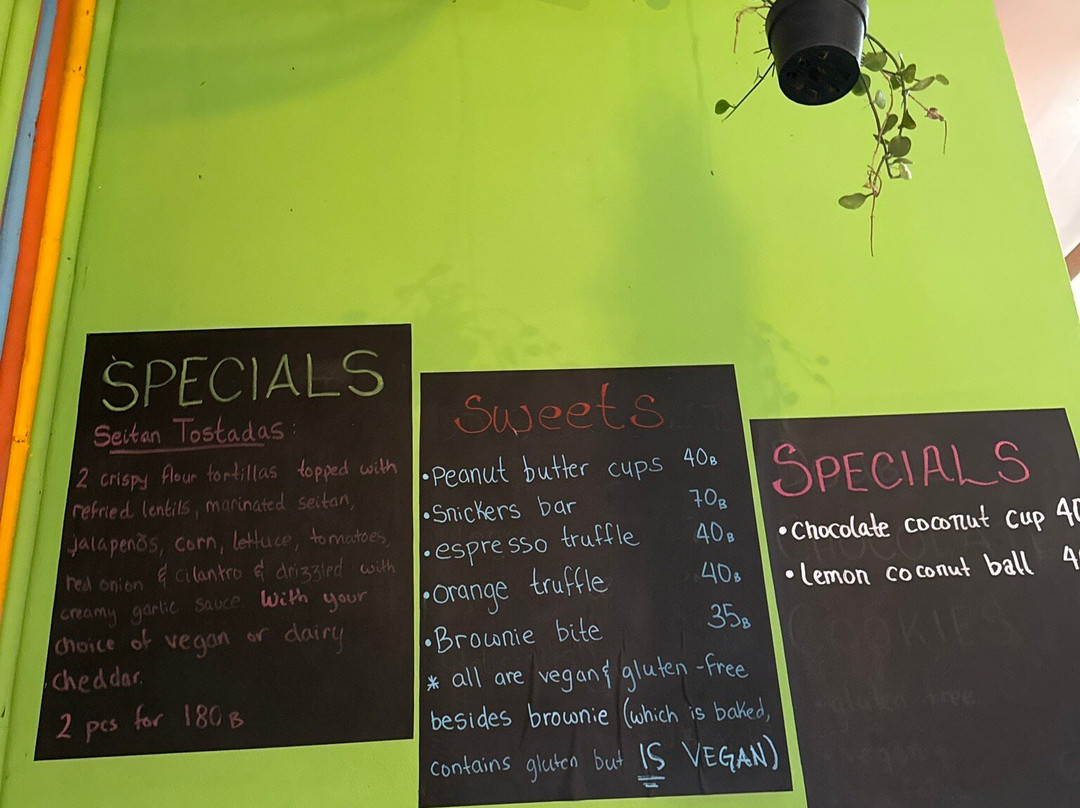 SPECIALS
Seitan Tostadas:
2 crispy flour tortillas topped with
refried lentils, marinated seitan,
jalapenõs, corn, lettuce, tomatoes,
red onion & cilantro & drizzled with
creamy garlic sauce. With your
choice of vegan or dairy
cheddar.
2 pcs for 180B
Sweets
•Peanut butter cups 40B
•Snickers bar 70B
•espresso truffle 40B
•orange truffle 40B
•Brownie bite 35B
* all are vegan & gluten-free
besides brownie (which is baked,
contains gluten but IS VEGAN)
SPECIALS
•Chocolate coconut cup 40
•Lemon coconut ball 4
COOKIES
gluten free